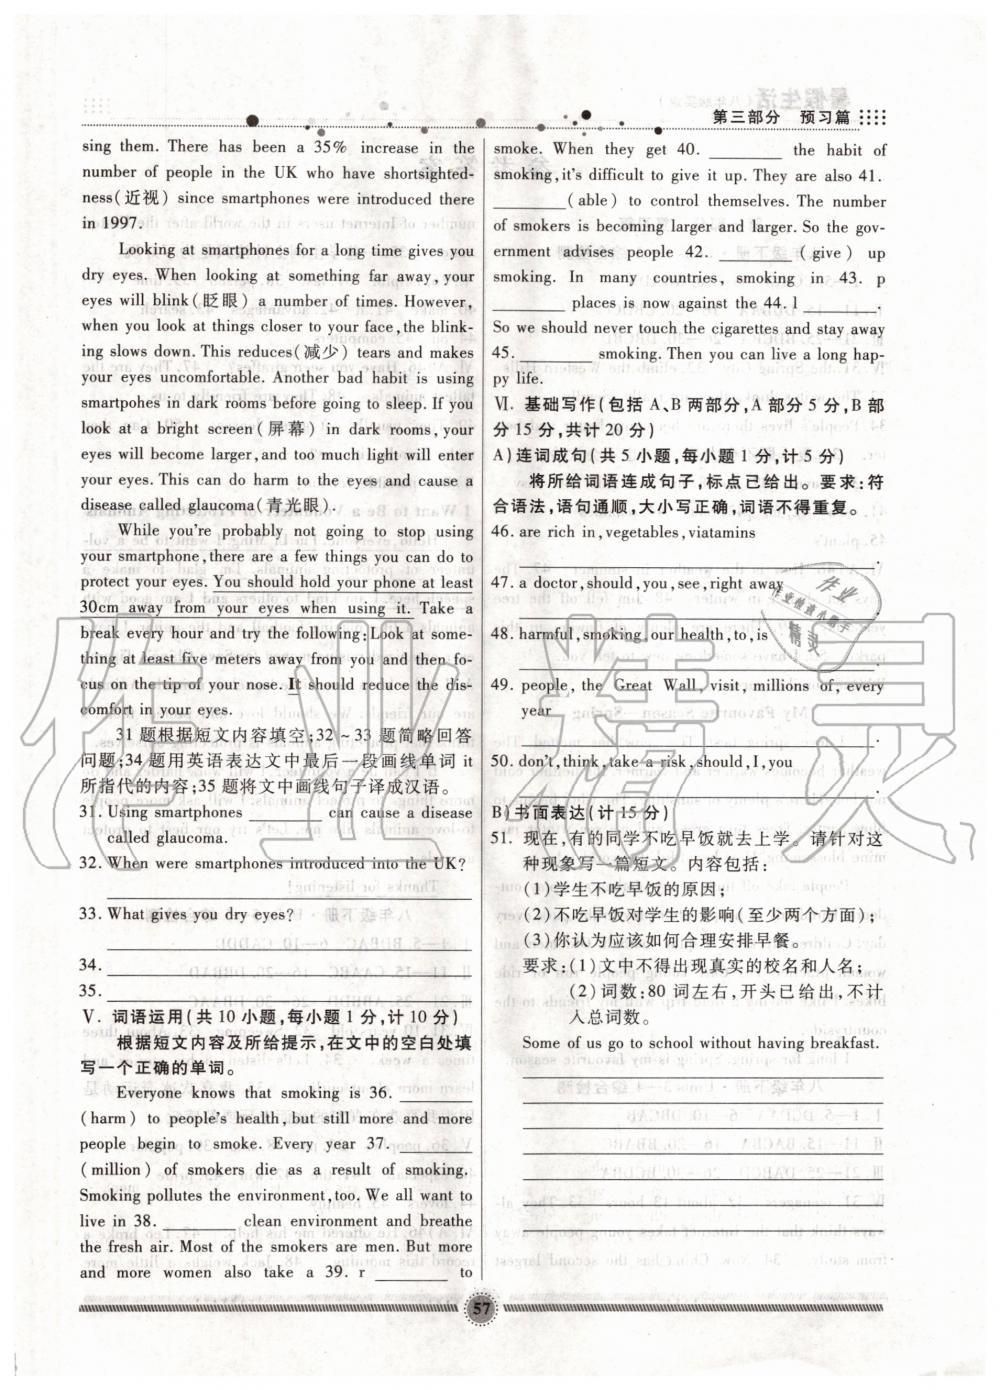 第三部分 预习篇
sing them. There has been a 35% increase in the
number of people in the UK who have shortsighted-
ness(近视) since smartphones were introduced there
in 1997.
Looking at smartphones for a long time gives you
dry eyes. When looking at something far away, your
eyes will blink(眨眼) a number of times. However,
when you look at things closer to your face, the blink-
ing slows down. This reduces(减少) tears and makes
your eyes uncomfortable. Another bad habit is using
smartpohes in dark rooms before going to sleep. If you
look at a bright screen(屏幕) in dark rooms, your
eyes will become larger, and too much light will enter
your eyes. This can do harm to the eyes and cause a
disease called glaucoma(青光眼).
While you're probably not going to stop using
your smartphone, there are a few things you can do to
protect your eyes. You should hold your phone at least
30cm away from your eyes when using it. Take a
break every hour and try the following: Look at some-
thing at least five meters away from you and then fo-
cus on the tip of your nose. It should reduce the dis-
comfort in your eyes.
31题根据短文内容填空;32~33题简略回答
问题;34题用英语表达文中最后一段画线单词 it
所指代的内容;35题将文中画线句子译成汉语。
31. Using smartphones ________ can cause a disease
called glaucoma.
32. When were smartphones introduced into the UK?
33. What gives you dry eyes?
34.
35.
Ⅴ. 词语运用(共10小题,每小题1分,计10分)
根据短文内容及所给提示,在文中的空白处填
写一个正确的单词。
Everyone knows that smoking is 36. ________
(harm) to people's health, but still more and more
people begin to smoke. Every year 37. ________
(million) of smokers die as a result of smoking.
Smoking pollutes the environment, too. We all want to
live in 38. ________ clean environment and breathe
the fresh air. Most of the smokers are men. But more
and more women also take a 39. r ________ to
smoke. When they get 40. ________ the habit of
smoking, it's difficult to give it up. They are also 41.
________ (able) to control themselves. The number
of smokers is becoming larger and larger. So the gov-
ernment advises people 42. ________ (give) up
smoking. In many countries, smoking in 43. p
________ places is now against the 44. l ________.
So we should never touch the cigarettes and stay away
45. ________ smoking. Then you can live a long hap-
py life.
Ⅵ. 基础写作(包括A、B两部分,A部分5分,B部
分15分,共计20分)
A)连词成句(共5小题,每小题1分,计5分)
将所给词语连成句子,标点已给出。要求:符
合语法,语句通顺,大小写正确,词语不得重复。
46. are rich in, vegetables, viatamins
47. a doctor, should, you, see, right away
48. harmful, smoking, our health, to, is
49. people, the Great Wall, visit, millions of, every
year
50. don't, think, take a risk, should, I, you
B)书面表达(计15分)
51. 现在,有的同学不吃早饭就去上学。请针对这
种现象写一篇短文。内容包括:
(1)学生不吃早饭的原因;
(2)不吃早饭对学生的影响(至少两个方面);
(3)你认为应该如何合理安排早餐。
要求:(1)文中不得出现真实的校名和人名;
(2)词数:80词左右,开头已给出,不计
入总词数。
Some of us go to school without having breakfast.
57
作业精灵
作业
作业检查小帮手
精灵